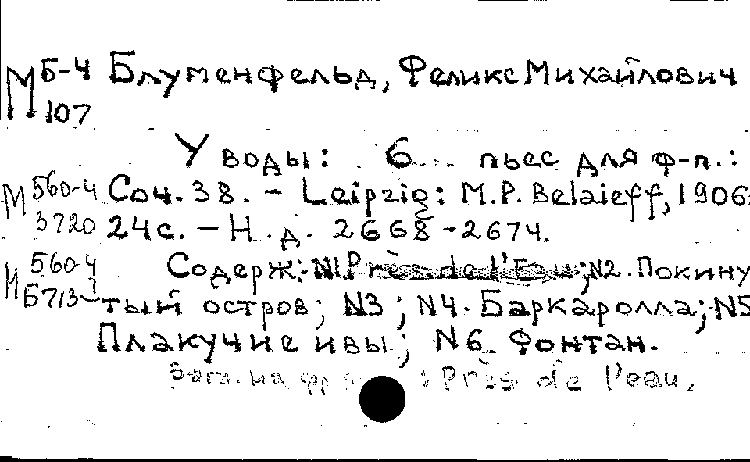 М Б-4 Блуменфельд, Феликс Михайлович
107
У воды: 6 пьес для ф-п.:
М 560-4 Соч. 38. - Leipzig: M.P. Belaieff, 1906.
3720 24 с. - Н.д. 2668-2674.
М 560-4 Содерж: №1. Près de l'Eau; №2. Покину
Б713 тый остров; №3; №4. Баркаролла; №5
Плакучие ивы; №6 Фонтан.
Загл. на фр Près de l'eau.